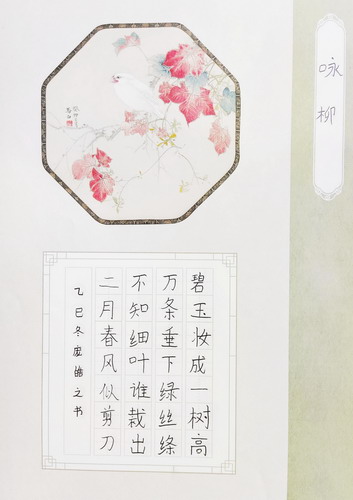 咏柳
碧玉妆成一树高
万条垂下绿丝绦
不知细叶谁裁出
二月春风似剪刀
乙巳冬
之书